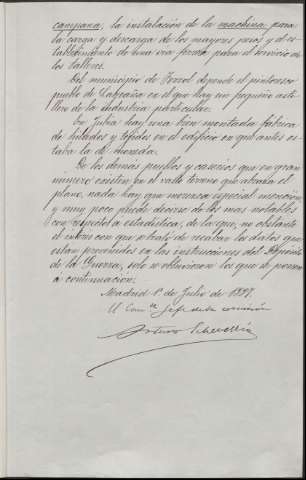 campana, la instalación de la machina para
la carga y descarga de los mayores pesos y el es-
tablecimiento de una via ferrea para el servicio de
los talleres.
Del municipio de Ferrol depende el pintoresco
pueblo de La Graña en el que hay un pequeño asti-
llero de la industria particular.
En Jubia hay una bien montada fábrica
de hilados y tejidos en el edificio en que antes es-
taba la de moneda.
De los demás pueblos y caserios que en gran
número existen en el valle terreno que abraza el
plano, nada hay que merezca especial mención
y muy poco puede decirse de los mas notables
con respecto á estadistica; de la que, no obstante
el interes con que se trató de recabar los datos que
estan prevenidos en las instrucciones del Depósito
de la Guerra, solo se obtuvieron los que se ponen
á continuación.
Madrid 1º de Julio de 1897.
El Com.te Jefe de la comisión
Arturo Echeverría